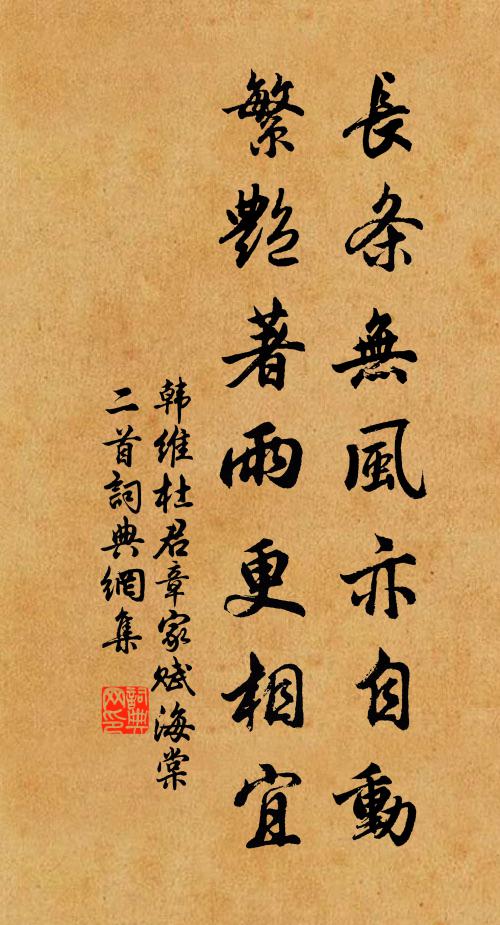 長条無風亦自動
繁艷著雨更相宜
韩維杜君章家赋海棠
二首詞典網集
詞典
网印